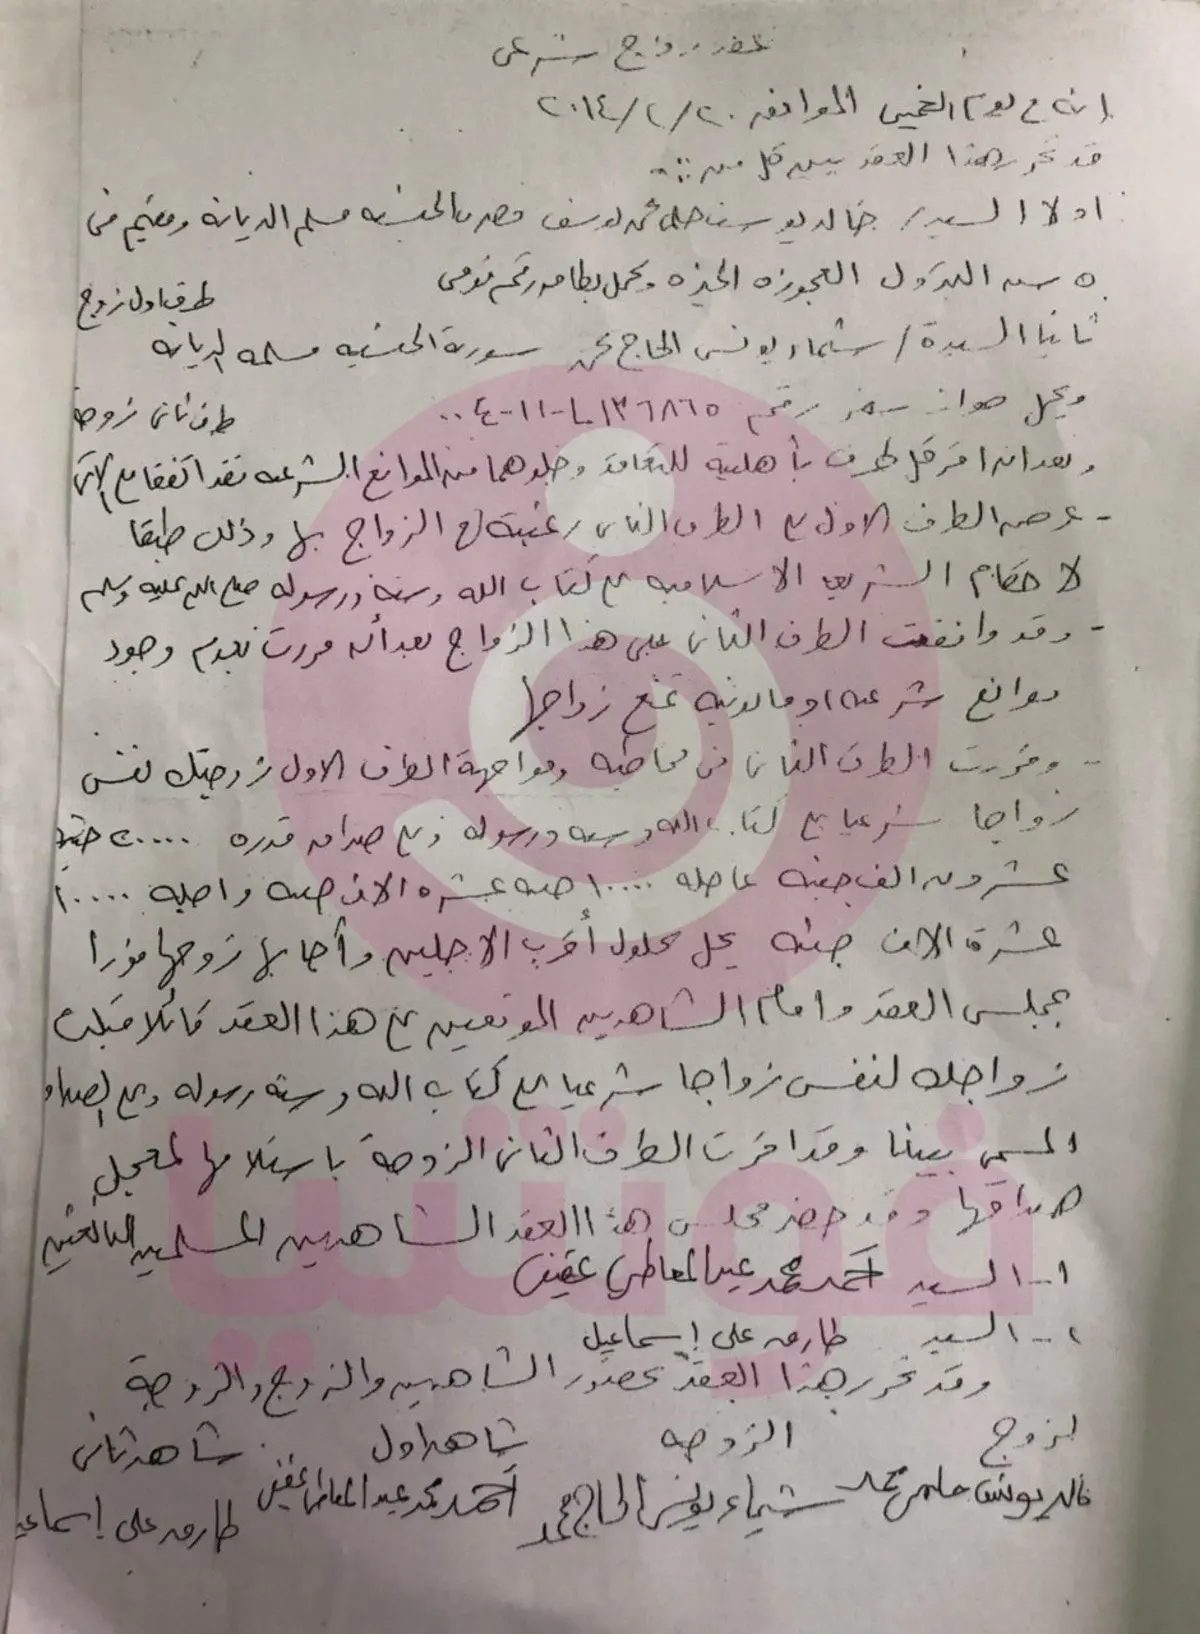 عقد زواج شرعى
انه فى يوم الخميس الموافق ٢٠/٢/٢٠١٤
قد تحرر هذا العقد بين كل من :-
اولا السيد / خالد يوسف حلمى محمد يوسف مصرى الجنسيه مسلم الديانه ومقيم فى
العجوزه الجيزه ويحمل بطاقه رقم قومى
طرف اول زوج
ثانيا السيدة / شيماء يونس الحاج محمد سورية الجنسيه مسلمه الديانه
ويحمل جواز سفر رقم
طرف ثانى زوجة
وبعد ان اقر كل طرف بأهلية للتعاقد وخلوهما من الموانع الشرعيه فقد اتفقا على الاتى
- عرض الطرف الاول على الطرف الثانى رغبته فى الزواج بها وذلك طبقا
لاحكام الشريعه الاسلاميه على كتاب الله وسنة ورسوله صلى الله عليه وسلم
- وقد وافقت الطرف الثانى على هذا الزواج بعد أن قررت بعدم وجود
موانع شرعيه او قانونيه تمنع زواجها
- وقررت الطرف الثانى فى مخاطبه ومواجهة الطرف الاول زوجتك نفسى
زواجا شرعيا على كتاب الله وسنه ورسوله وعلى صداق قدره ٢٠٠٠٠ جنيه
عشرون الف جنيه عاجله ١٠٠٠٠ جنيه عشره الاف جنيه واجله ١٠٠٠٠
عشرة الاف جنيه يحل بحلول أقرب الاجلين وأجابها زوجها فورا
بمجلس العقد وامام الشاهدين الموقعين على هذا العقد قائلا قبلت
زواجك لنفسى زواجا شرعيا على كتاب الله وسنة رسوله وعلى الصداق
المسمى بيننا وقد اقرت الطرف الثانى الزوجة باستلامها لمعجل
صداقها وقد حضر مجلس هذا العقد الشاهدين المسلمين البالغين
١- السيد أحمد محمد عبد المعاطى عفيفى
٢- السيد طارق على إسماعيل
وقد تحرر هذا العقد بحضور الشاهدين والزوج والزوجة
الزوج الزوجه شاهد اول شاهد ثانى
خالد يوسف حلمى محمد شيماء يونس الحاج محمد أحمد محمد عبد المعاطى عفيفى طارق على إسماعيل
فوشيا